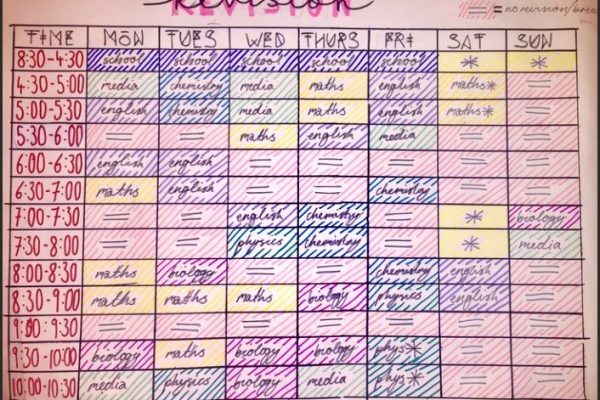 REVISION
= no revision/brea
TIME MON TUES WED THURS FRI SAT SUN
8:30-4:30 school school school school school * *
4:30-5:00 media chemistry media maths english maths* =
5:00-5:30 english chemistry media maths english maths* =
5:30-6:00 = = maths english media = =
6:00-6:30 english english = = = = =
6:30-7:00 maths english = = chemistry = =
7:00-7:30 = = english chemistry = * biology
7:30-8:00 = = physics chemistry = * media
8:00-8:30 maths biology = = chemistry english =
8:30-9:00 maths maths maths biology physics english =
9:00:9:30 = = = = = = =
9:30-10:00 biology maths biology biology phys* = =
10:00-10:30 media physics biology media phys* = =